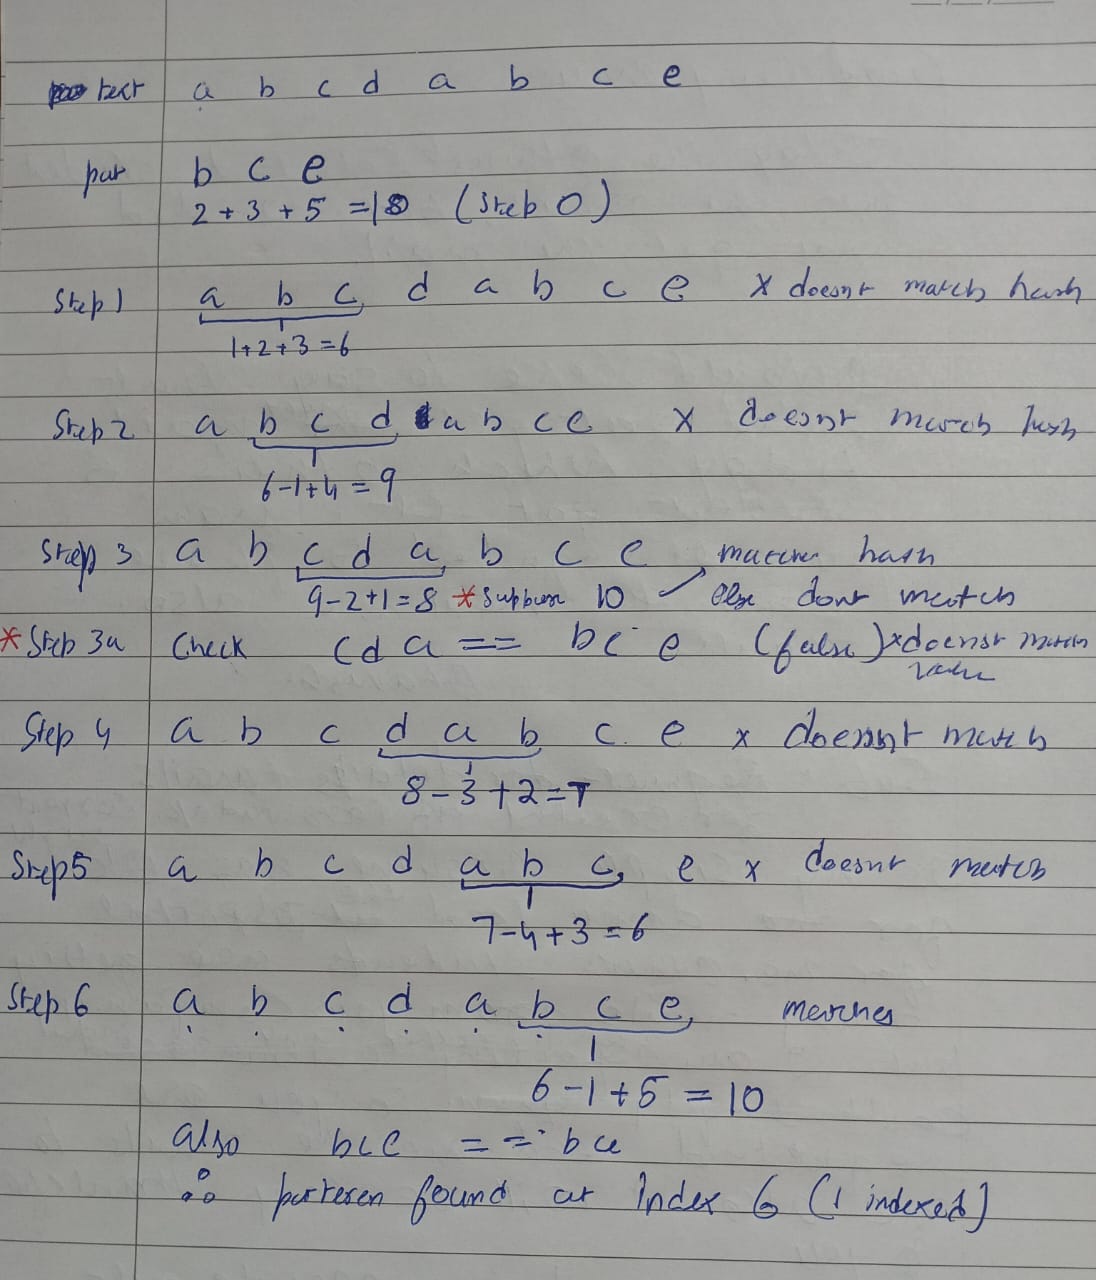 text a b c d a b c e
pat b c e
2 + 3 + 5 = 10 (Step 0)
Step 1 a b c d a b c e x doesnt match hash
1+2+3=6
Step 2 a b c d a b c e x doesnt match hash
6-1+4 = 9
Step 3 a b c d a b c e matches hash
9-2+1=8 * Suppose 10 else dont match
* Step 3a Check c d a == b c e (false) x doesnt match
value
Step 4 a b c d a b c e x doesnt match
8-3+2=7
Step 5 a b c d a b c e x doesnt match
7-4+3=6
Step 6 a b c d a b c e matches
6-1+5 = 10
also bce == bce
∴ patteren found at Index 6 (1 indexed)